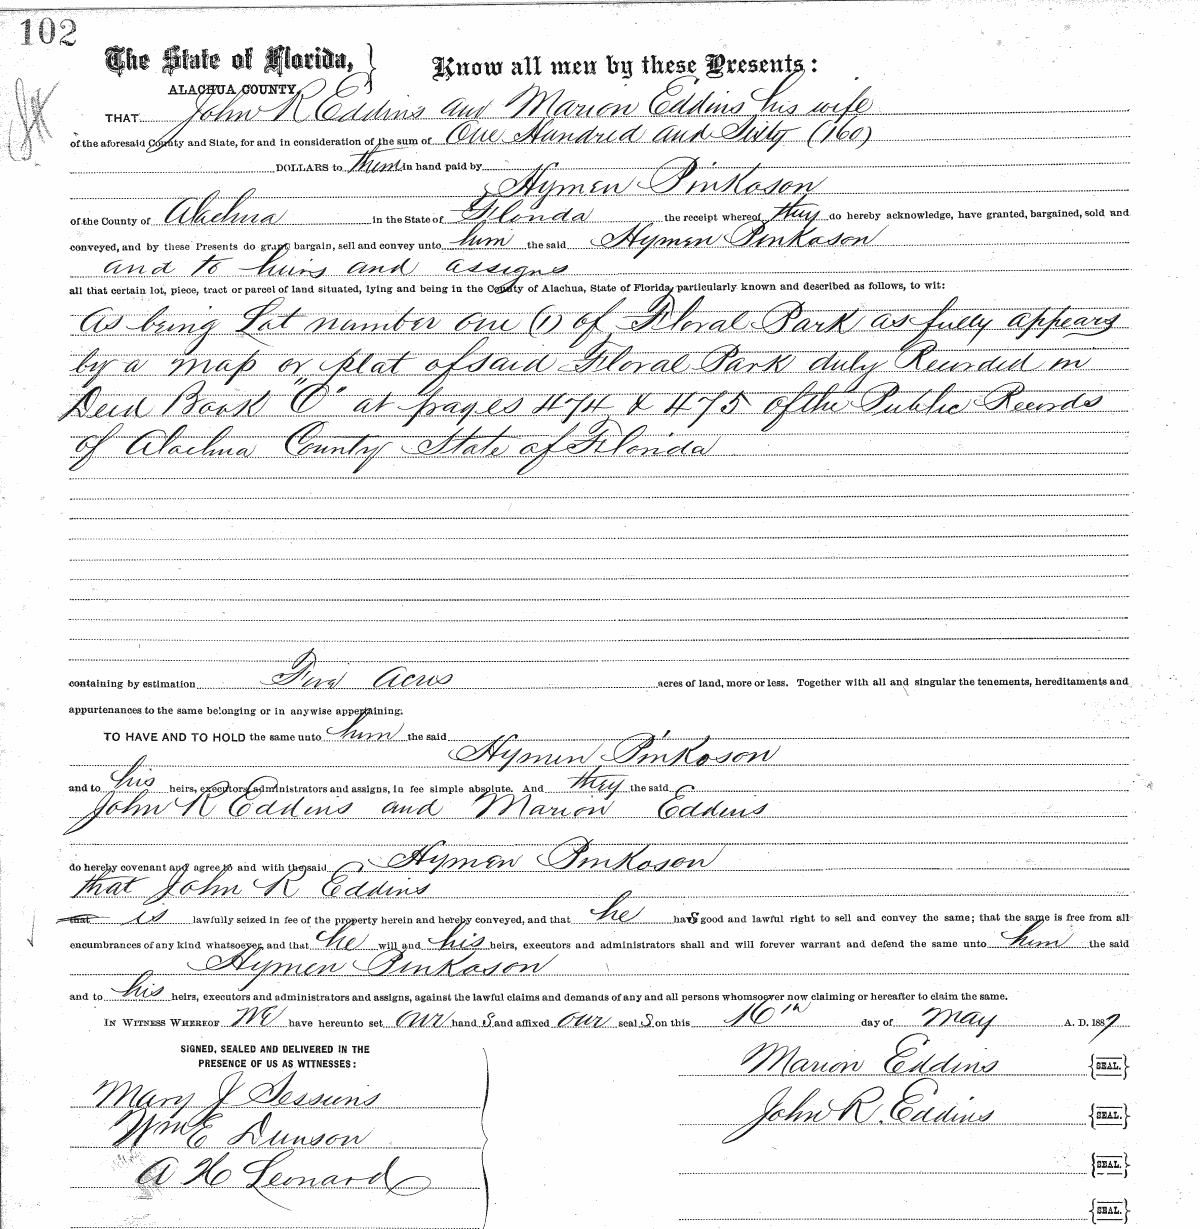 102
The State of Florida, } Know all men by these Presents:
ALACHUA COUNTY.
THAT John R Eddins and Marion Eddins his wife
of the aforesaid County and State, for and in consideration of the sum of One Hundred and Sixty (160)
DOLLARS to them in hand paid by
Hymen Pinkoson
of the County of Alachua in the State of Florida the receipt whereof they do hereby acknowledge, have granted, bargained, sold and
conveyed, and by these Presents do grant, bargain, sell and convey unto him the said Hymen Pinkoson
and to heirs and assigns
all that certain lot, piece, tract or parcel of land situated, lying and being in the County of Alachua, State of Florida, particularly known and described as follows, to wit:
As being Lot number one (1) of Floral Park as fully appears
by a map or plat of said Floral Park duly Recorded in
Deed Book "O" at pages 474 & 475 of the Public Records
of Alachua County State of Florida
containing by estimation Five Acres acres of land, more or less. Together with all and singular the tenements, hereditaments and
appurtenances to the same belonging or in anywise appertaining.
TO HAVE AND TO HOLD the same unto him the said
Hymen Pinkoson
and to his heirs, executors, administrators and assigns, in fee simple absolute. And they the said
John R Eddins and Marion Eddins
do hereby covenant and agree to and with the said Hymen Pinkoson
that John R Eddins
that is lawfully seized in fee of the property herein and hereby conveyed, and that he has good and lawful right to sell and convey the same; that the same is free from all
encumbrances of any kind whatsoever, and that he will and his heirs, executors and administrators shall and will forever warrant and defend the same unto him the said
Hymen Pinkoson
and to his heirs, executors and administrators and assigns, against the lawful claims and demands of any and all persons whomsoever now claiming or hereafter to claim the same.
IN WITNESS WHEREOF We have hereunto set our hand s and affixed our seal s on this 16th day of May A. D. 1887
SIGNED, SEALED AND DELIVERED IN THE
PRESENCE OF US AS WITNESSES:
Marion Eddins {SEAL.}
Mary J Sessions
John R. Eddins {SEAL.}
Wm E Dunson
{SEAL.}
A H Leonard
{SEAL.}